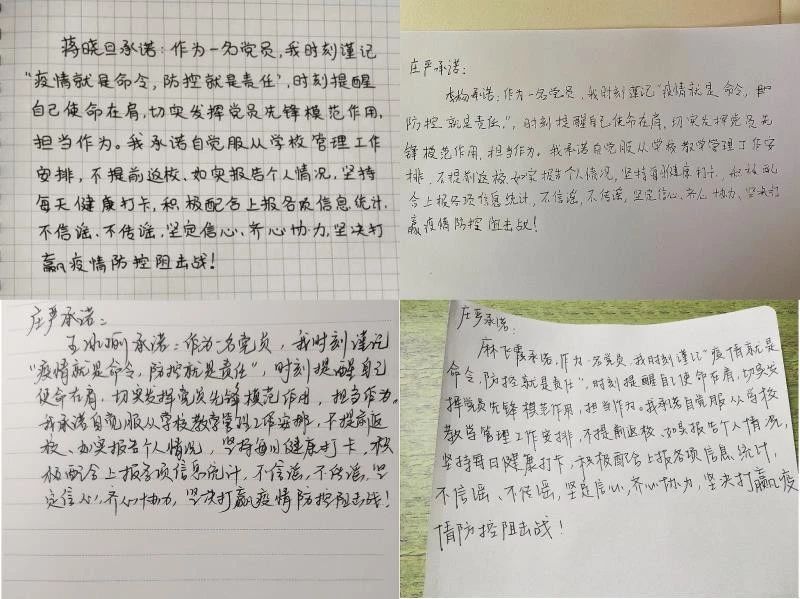 蒋晓旦承诺:作为一名党员,我时刻谨记
"疫情就是命令,防控就是责任",时刻提醒
自己使命在肩,切实发挥党员先锋模范作用,
担当作为。我承诺自觉服从学校管理工作
安排,不提前返校、如实报告个人情况,坚持
每天健康打卡,积极配合上报各项信息统计,
不信谣、不传谣,坚定信心、齐心协力,坚决打
赢疫情防控阻击战!
庄严承诺:
承诺:作为一名党员,我时刻谨记"疫情就是命令,
防控就是责任",时刻提醒自己使命在肩,切实发挥党员先
锋模范作用,担当作为。我承诺自觉服从学校教学管理工作安
排,不提前返校、如实报告个人情况,坚持每日健康打卡,积极配
合上报各项信息统计,不信谣,不传谣,坚定信心、齐心协力、坚决打
赢疫情防控阻击战!
庄严承诺:
王冰丽承诺:作为一名党员,我时刻谨记
"疫情就是命令,防控就是责任",时刻提醒自己
使命在肩,切实发挥党员先锋模范作用,担当作为。
我承诺自觉服从学校教学管理工作安排,不提前返
校、如实报告个人情况,坚持每日健康打卡,积
极配合上报各项信息统计,不信谣,不传谣,坚
定信心,齐心协力,坚决打赢疫情防控阻击战!
庄严承诺:
麻飞霞承诺,作为一名党员,我时刻谨记"疫情就是
命令,防控就是责任",时刻提醒自己使命在肩,切实发
挥党员先锋模范作用,担当作为。我承诺自觉服从学校
教学管理工作安排,不提前返校、如实报告个人情况,
坚持每日健康打卡,积极配合上报各项信息统计,
不信谣、不传谣,坚定信心,齐心协力,坚决打赢疫
情防控阻击战!